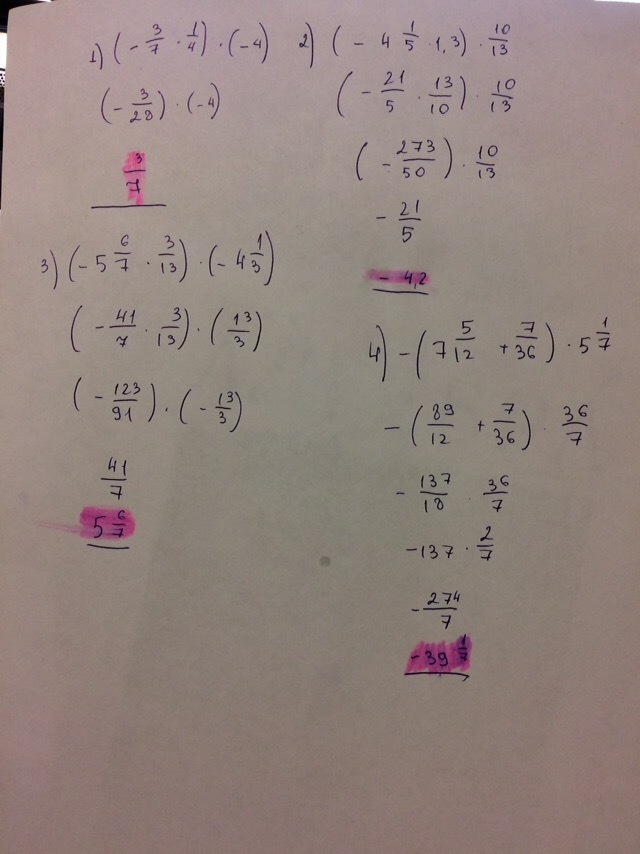 1) (- 3/7 · 1/4) · (-4)
(- 3/28) · (-4)
3/7
2) (- 4 1/5 · 1,3) · 10/13
(- 21/5 · 13/10) · 10/13
(- 273/50) · 10/13
- 21/5
- 4,2
3) (- 5 6/7 · 3/13) · (-4 1/3)
(- 41/7 · 3/13) · (13/3)
(- 123/91) · (- 13/3)
41/7
5 6/7
4) - (7 5/12 + 7/36) · 5 1/7
- (89/12 + 7/36) · 36/7
- 137/18 · 36/7
-137 · 2/7
- 274/7
- 39 1/7